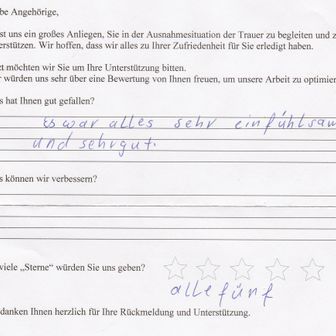 be Angehörige,
st uns ein großes Anliegen, Sie in der Ausnahmesituation der Trauer zu begleiten und z
erstützen. Wir hoffen, dass wir alles zu Ihrer Zufriedenheit für Sie erledigt haben.
zt möchten wir Sie um Ihre Unterstützung bitten.
r würden uns sehr über eine Bewertung von Ihnen freuen, um unsere Arbeit zu optimier
s hat Ihnen gut gefallen?
Es war alles sehr einfühlsam
und sehr gut.
s können wir verbessern?
viele „Sterne“ würden Sie uns geben?
alle fünf
danken Ihnen herzlich für Ihre Rückmeldung und Unterstützung.